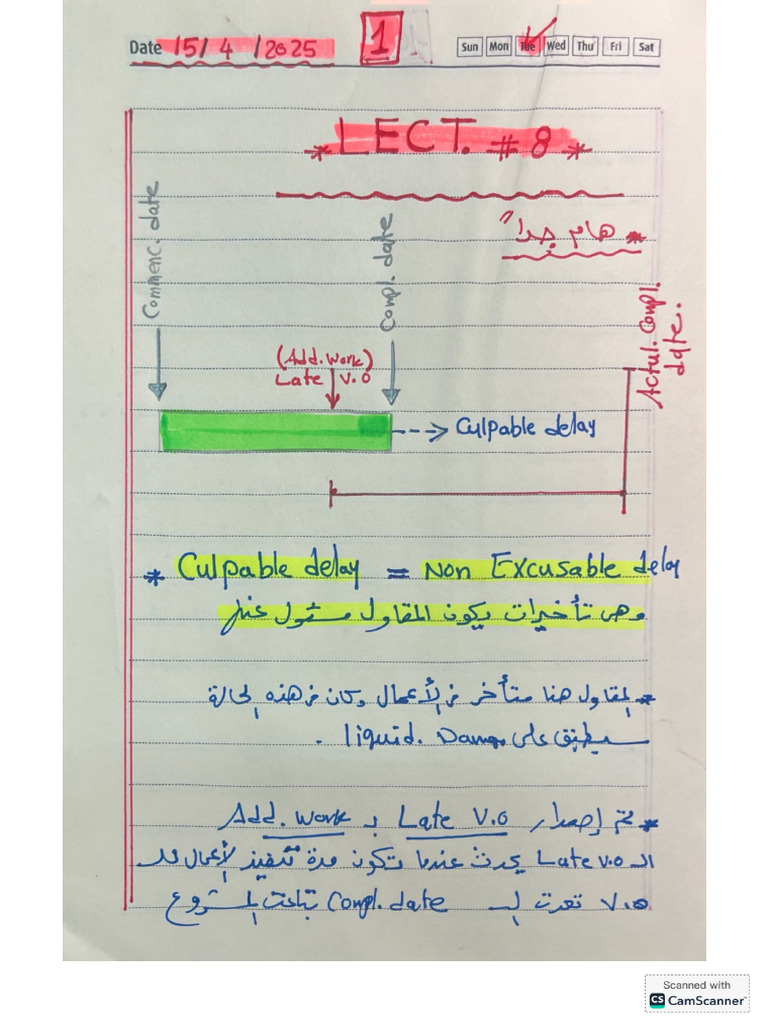 Date 15/ 4 /2025
1
Sun Mon Tue Wed Thu Fri Sat
* LECT. # 8 *
* هام جداً
Commenc. date
Compl. date
Actul. Compl. date.
(Add. Work)
Late V.O
Culpable delay
* Culpable delay = Non Excusable delay
وهى تأخيرات يكون المقاول مسئول عنها
* المقاول هنا متأخر فى الأعمال وكان فى هذه الحالة
سيطبق على liquid. Damg.
* تم إصدار Late V.O بـ Add. work
الـ Late V.O يحدث عندما تكون مدة تنفيذ الأعمال للـ
V.O تعدت الـ Compl. date بتاعت المشروع
Scanned with
CS CamScanner